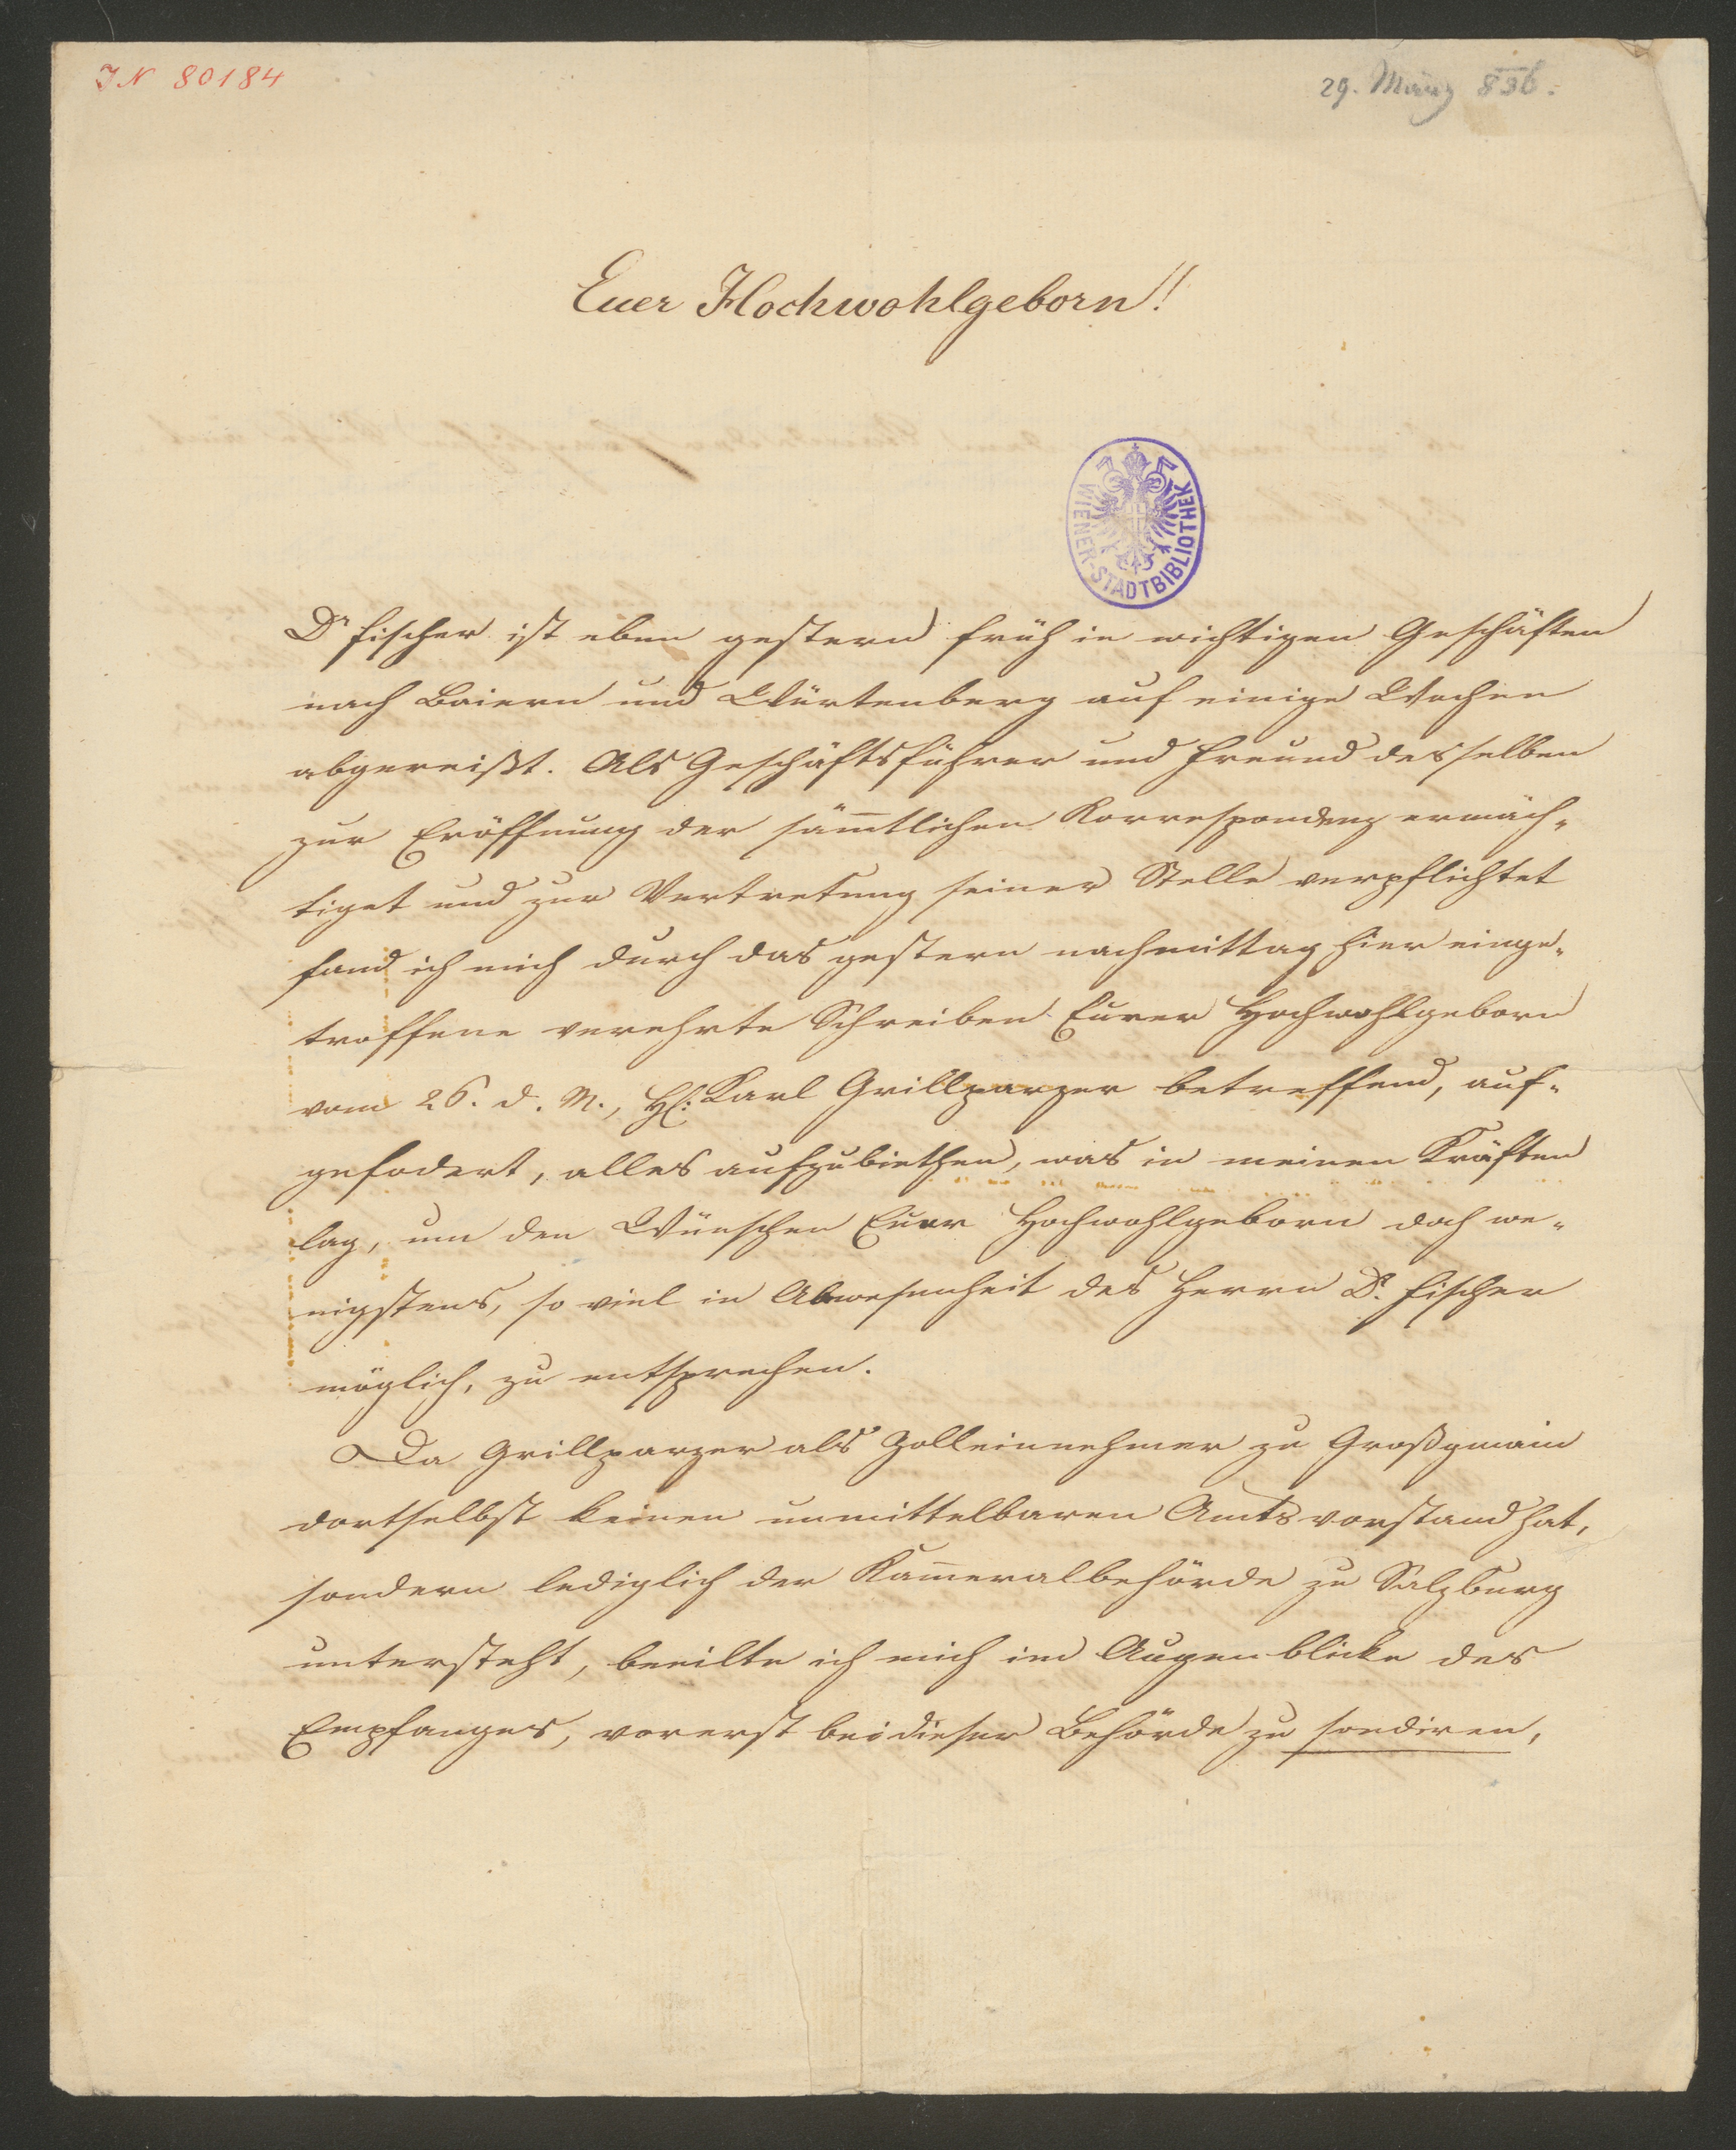 IN 80184
29. März 836.
Euer Hochwohlgeborn!
WIENER-STADTBIBLIOTHEK
Dr Fischer ist eben gestern früh in wichtigen Geschäften
nach Baiern und Würtenberg auf einige Wochen
abgereißt. Als Geschäftsführer und Freund desselben
zur Eröffnung der sämtlichen Korrespondenz ermäch-
tiget und zur Vertretung seiner Stelle verpflichtet
fand ich mich durch das gestern nachmittag hier einge-
troffene verehrte Schreiben Eurer Hochwohlgeborn
vom 26. d. M., H: Karl Grillparzer betreffend, auf-
gefodert, alles aufzubiethen, was in meinen Kräften
lag, um den Wünschen Euer Hochwohlgeborn doch we-
nigstens, so viel in Abwesenheit des Herrn Dr. Fischer
möglich, zu entsprechen.
Da Grillparzer als Zolleinnehmer zu Großgmain
dortselbst keinen unmittelbaren Amtsvorstand hat,
sondern lediglich der Kameralbehörde zu Salzburg
untersteht, beeilte ich mich im Augenblicke des
Empfanges, vorerst bei dieser Behörde zu sondiren,